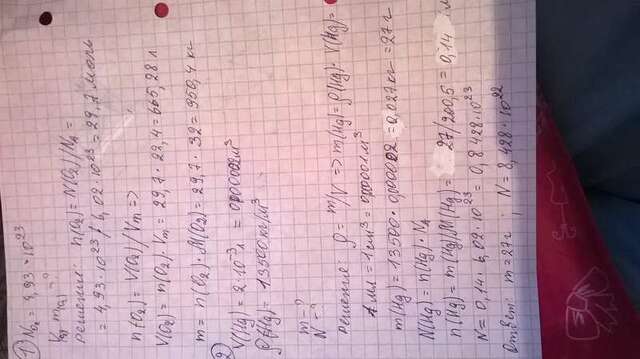 1) Na = 4,93 · 10²³
Решение: n(O₂) = N(O₂) / Nₐ =
= 4,93 · 10²³ / 6,02 · 10²³ = 29,7 моль
n(O₂) = V(O₂) / Vm =>
V(O₂) = n(O₂) · Vm = 29,7 · 22,4 = 665,28 л
m = n(O₂) · M(O₂) = 29,7 · 32 = 950,4 кг
2) V(Hg) = 2 · 10⁻³ л = 0,000002 м³
ρ(Hg) = 13500 кг/м³
m - ?
N - ?
Решение: ρ = m/V => m(Hg) = ρ(Hg) · V(Hg) =
1 мл = 1 см³ = 0,000001 м³
m(Hg) = 13500 · 0,000002 = 0,027 кг = 27 г
N(Hg) = n(Hg) · Nₐ
n(Hg) = m(Hg)/M(Hg) = 27/200,5 = 0,14
N = 0,14 · 6,02 · 10²³ = 0,8428 · 10²³
Ответ: m = 27 г ; N = 8,428 · 10²²